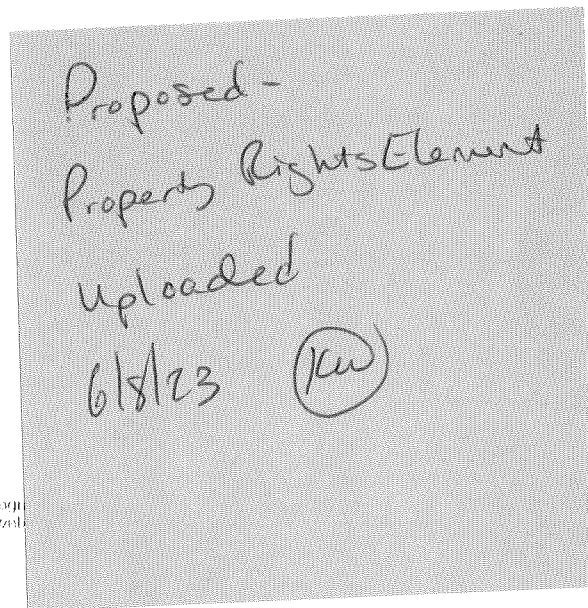 Proposed-
Property Rights Element
Uploaded
6/8/23 KW